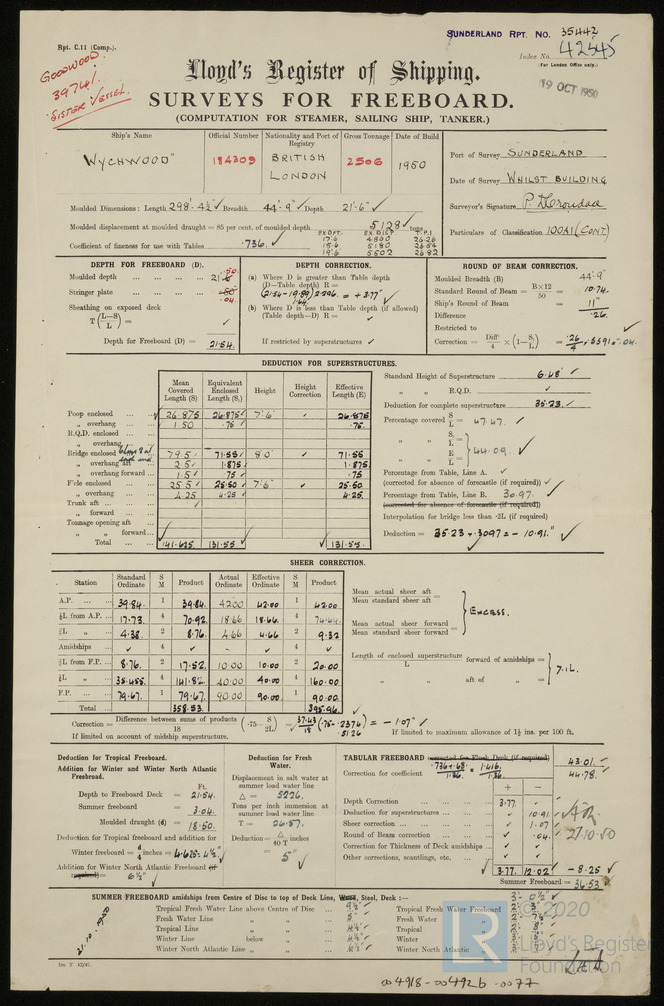 SUNDERLAND RPT. NO. 35442
Rpt. C.11 (Comp.).
Index No. 42545
(For London Office only.)
GOODWOOD.
39741.
SISTER VESSEL.
19 OCT 1950
Lloyd's Register of Shipping.
SURVEYS FOR FREEBOARD.
(COMPUTATION FOR STEAMER, SAILING SHIP, TANKER.)
Ship's Name Official Number Nationality and Port of Registry Gross Tonnage Date of Build
"WYCHWOOD" 184309 BRITISH LONDON 2506 1950
Port of Survey SUNDERLAND
Date of Survey WHILST BUILDING
Surveyor's Signature
Particulars of Classification 100A1 (CONT)
Moulded Dimensions: Length 298'-4½" Breadth 44'-9" Depth 21'-6"
Moulded displacement at moulded draught = 85 per cent. of moulded depth 5128 tons
Coefficient of fineness for use with Tables .736
EX DFT. EX. DISPT T.P.I
17'6 4860 26.26
18'6 5181 26.54
19'6 5502 26.82
DEPTH FOR FREEBOARD (D).
Moulded depth 21.50
Stringer plate .04
Sheathing on exposed deck
T(L-S/L) =
Depth for Freeboard (D) = 21.54
DEPTH CORRECTION.
(a) Where D is greater than Table depth
(D-Table depth) R =
(21.54-19.89) 2.296 = +3.77"
(b) Where D is less than Table depth (if allowed)
(Table depth-D) R =
If restricted by superstructures
ROUND OF BEAM CORRECTION.
Moulded Breadth (B) 44'-9"
Standard Round of Beam = B×12/50 = 10.74
Ship's Round of Beam = 11"
Difference .26
Restricted to
Correction = Diff/4 × (1-S₁/L) = .26/4 × .5591 = .04
DEDUCTION FOR SUPERSTRUCTURES.
Mean Covered Length (S) Equivalent Enclosed Length (S₁) Height Height Correction Effective Length (E)
Poop enclosed 26.875 26.875 7'6" 26.875
„ overhang 1.50 .75 .75
R.Q.D. enclosed
„ overhang
Bridge enclosed 79.5 71.55 8'0" 71.55
„ overhang aft 2.5 1.875 1.875
„ overhang forward 1.5 .75 .75
F'cle enclosed 25.5 25.50 7'6" 25.50
„ overhang 4.25 4.25 4.25
Trunk aft
„ forward
Tonnage opening aft
„ „ forward
Total 141.625 131.55 131.55
Standard Height of Superstructure 6.48'
„ „ R.Q.D.
Deduction for complete superstructure 35.23
Percentage covered S/L = 47.47
„ „ S₁/L =
„ „ E/L = 44.09
Percentage from Table, Line A.
(corrected for absence of forecastle (if required))
Percentage from Table, Line B. 30.97
(corrected for absence of forecastle (if required))
Interpolation for bridge less than .2L (if required)
Deduction = 35.23 × .3097 = - 10.91"
SHEER CORRECTION.
Station Standard Ordinate S M Product Actual Ordinate Effective Ordinate S M Product
A.P. 39.84 1 39.84 42.00 42.00 1 42.00
⅙L from A.P. 17.73 4 70.92 18.66 18.66 4 74.64
⅓L „ 4.38 2 8.76 4.66 4.66 2 9.32
Amidships 4 - 4
⅓L from F.P. 8.76 2 17.52 10.00 10.00 2 20.00
⅙L „ 35.455 4 141.82 40.00 40.00 4 160.00
F.P. 79.67 1 79.67 90.00 90.00 1 90.00
Total 358.53 395.96
Mean actual sheer aft
Mean standard sheer aft =
Mean actual sheer forward
Mean standard sheer forward =
EXCESS.
Length of enclosed superstructure forward of amidships =
L
„ „ aft of „ =
7.1L
Correction = Difference between sums of products/18 (.75-S/2L) = 37.43/18 (.75-.2374) = -1.07"
.5126
If limited on account of midship superstructure.
If limited to maximum allowance of 1½ ins. per 100 ft.
Deduction for Tropical Freeboard.
Addition for Winter and Winter North Atlantic Freeboard.
Ft.
Depth to Freeboard Deck = 21.54
Summer freeboard = 3.04
Moulded draught (d) = 18.50
Deduction for Tropical freeboard and addition for
Winter freeboard = d/4 inches = 4.625 = 4½"
Addition for Winter North Atlantic Freeboard (if required) = 6½"
Deduction for Fresh Water.
Displacement in salt water at summer load water line
Δ = 5226
Tons per inch immersion at summer load water line
T = 26.57
Deduction = Δ/40 T inches
= 5"
TABULAR FREEBOARD corrected for Flush Deck (if required) 43.01
Correction for coefficient .736+.68/1.36 = 1.416/1.36 44.78
+ -
Depth Correction 3.77
Deduction for superstructures 10.91
Sheer correction 1.07
Round of Beam correction .04
Correction for Thickness of Deck amidships
Other corrections, scantlings, etc.
3.77 12.02 -8.25
Summer Freeboard = 36.53
27.10.50
SUMMER FREEBOARD amidships from Centre of Disc to top of Deck Line, Wood, Steel, Deck :— 3'-0½"
Tropical Fresh Water Line above Centre of Disc Tropical Fresh Water Freeboard
Fresh Water Line „ „ 5" Fresh Water „
Tropical Line „ „ 4½" Tropical „
Winter Line below „ „ 4½" Winter „
Winter North Atlantic Line „ „ Winter North Atlantic „
© 2020
LR
Lloyd's Register
Foundation
004918-004926-0077